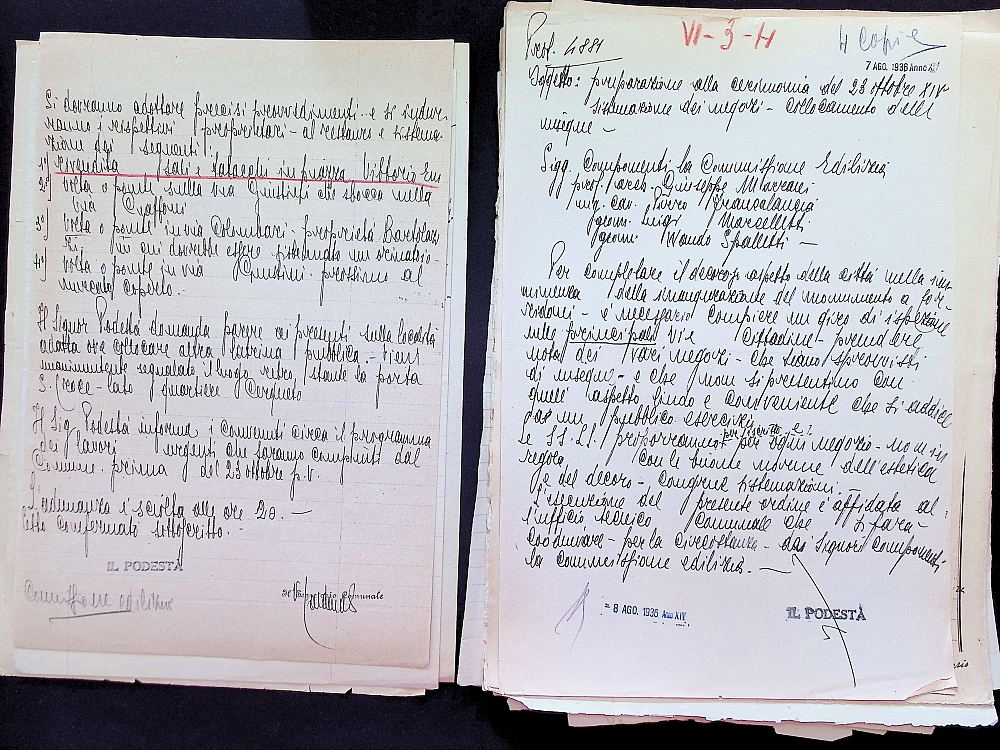 Si dovranno adottare precisi provvedimenti - e si indur-
ranno i rispettivi proprietari - al restauro e sistema-
zione dei seguenti:
1°) Rivendita sali e tabacchi in piazza Vittorio Em
2°) Volta o ponte sulla via Giustini che sbocca nella
via Ciaffoni
3°) Volta o ponte in via Colombari - proprietà Bartolazzi
in cui dovrebbe essere sistemato un orinatoio -
4°) Volta o ponte in via Giustini - prossimo al
mercato coperto. -
Il Signor Podestà domanda parere ai presenti sulla località
adatta ove collocare altra latrina pubblica - Viene
unanimemente segnalato il luogo retro, stante la porta
S. Croce - lato quartiere Cerqueto
Il Sig. Podestà informa i convenuti circa il programma
dei lavori urgenti che saranno compiuti dal
Comune prima del 23 ottobre p.v.
L'adunanza è sciolta alle ore 20. -
Letto confermato sottoscritto. -
IL PODESTÀ
Commissione edilizia
Il Segretario Comunale
Prot. 4881
VI-3-4
4 copie
7 AGO. 1936 Anno XIV
Oggetto: preparazione alla cerimonia del 23 ottobre XIV
sistemazione dei negozi - collocamento delle
insegne -
Sigg. Componenti la Commissione Edilizia
prof. arch. Giuseppe Marrani
ing. cav. Pirro Francalancia
geom. Luigi Marcelletti
geom. Wando Spaletti -
Per completare il decoroso aspetto della città nella im-
minenza della inaugurazione del monumento a Cor-
ridoni - è necessario compiere un giro di ispezione
nelle principali vie cittadine - prendere
nota dei vari negozi - che siano sprovvisti
di insegne - e che non si presentino con
quell'aspetto lindo e conveniente che si addice
ad un pubblico esercizio
le SS.LL. proporranno per iscritto e per ogni negozio - non in
regola con le buone norme dell'estetica
e del decoro - congrue sistemazioni. -
L'esecuzione del presente ordine è affidata al-
l'ufficio tecnico Comunale che si farà
coadiuvare - per la circostanza - dai Signori componenti
la commissione edilizia. -
= 8 AGO. 1936 Anno XIV
IL PODESTÀ